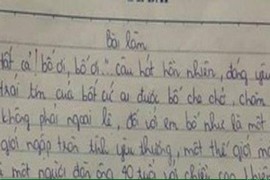 Bài làm
tất cả! bố ơi, bố ơi..." câu hát hồn nhiên, đáng yêu
trái tim của bất cứ ai được bố che chở, chăm
không phải ngoại lệ, đối với em bố như là một
giới ngập tràn tình yêu thương, một thế giới mà
là một người đàn ông 40 tuổi với chiều cao khiêm